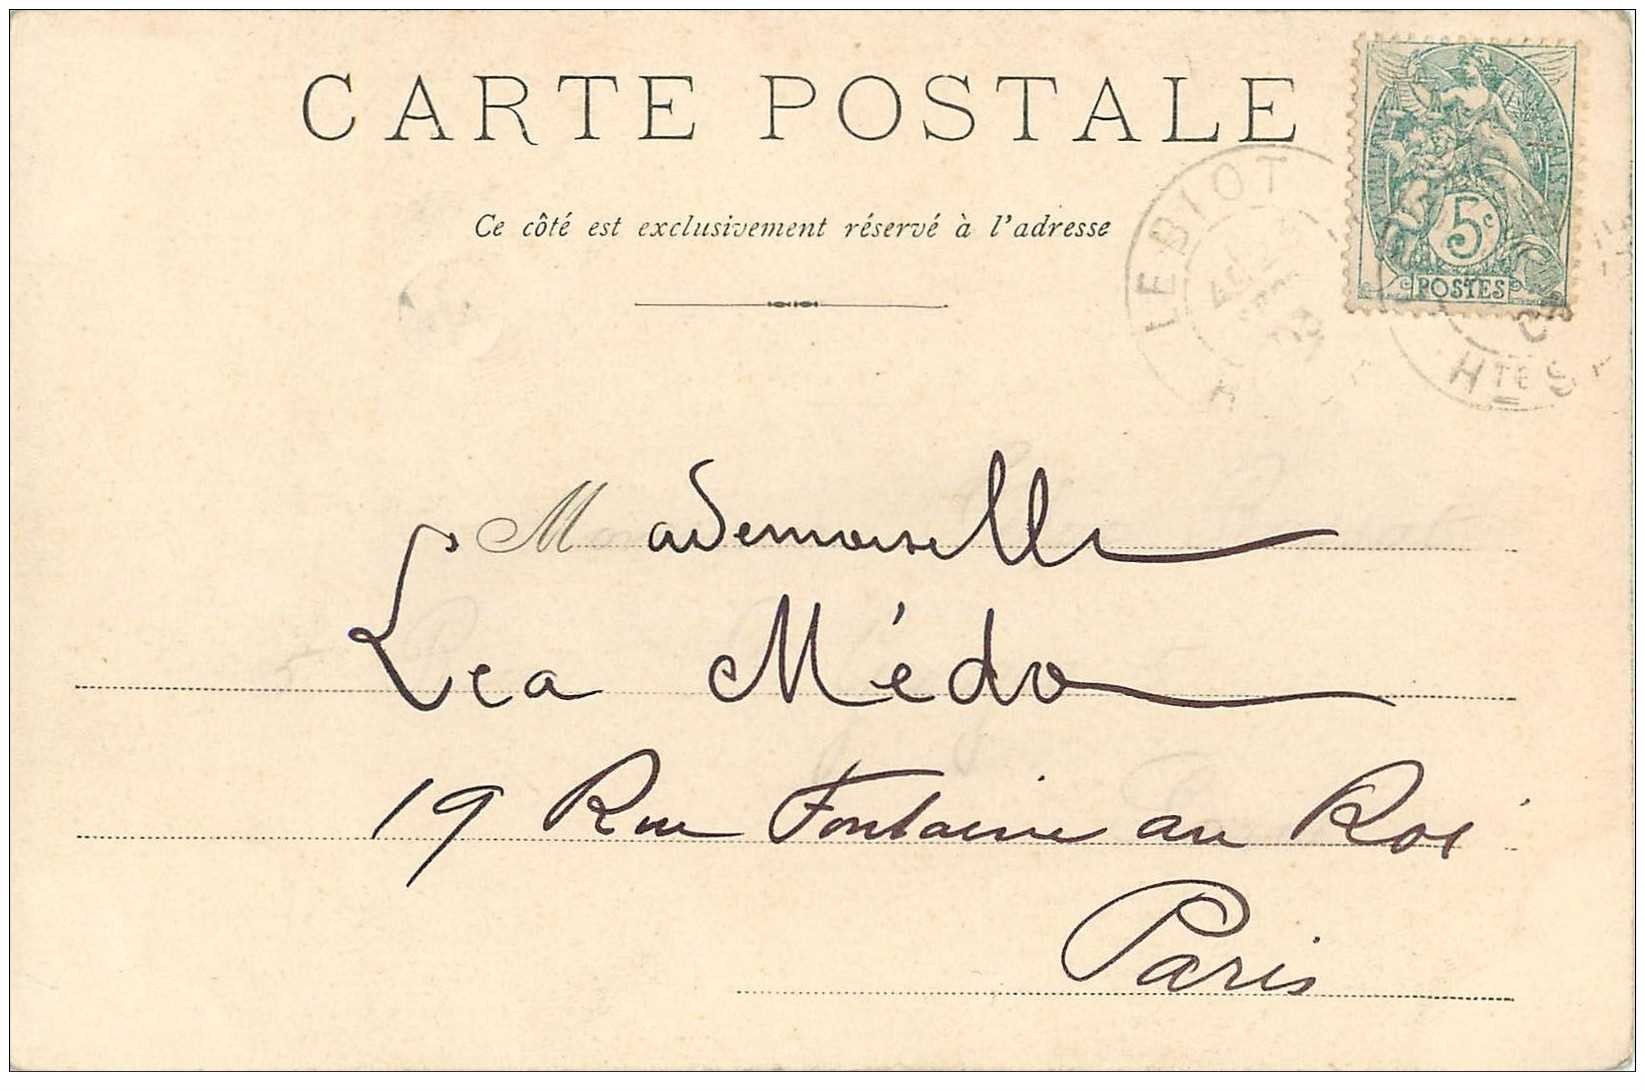 CARTE POSTALE
Ce côté est exclusivement réservé à l'adresse
LE BIOT
RÉPUBLIQUE FRANÇAISE
5c
POSTES
Hte S
Mademoiselle
Lea Médo
19 Rue Fontaine au Roi
Paris